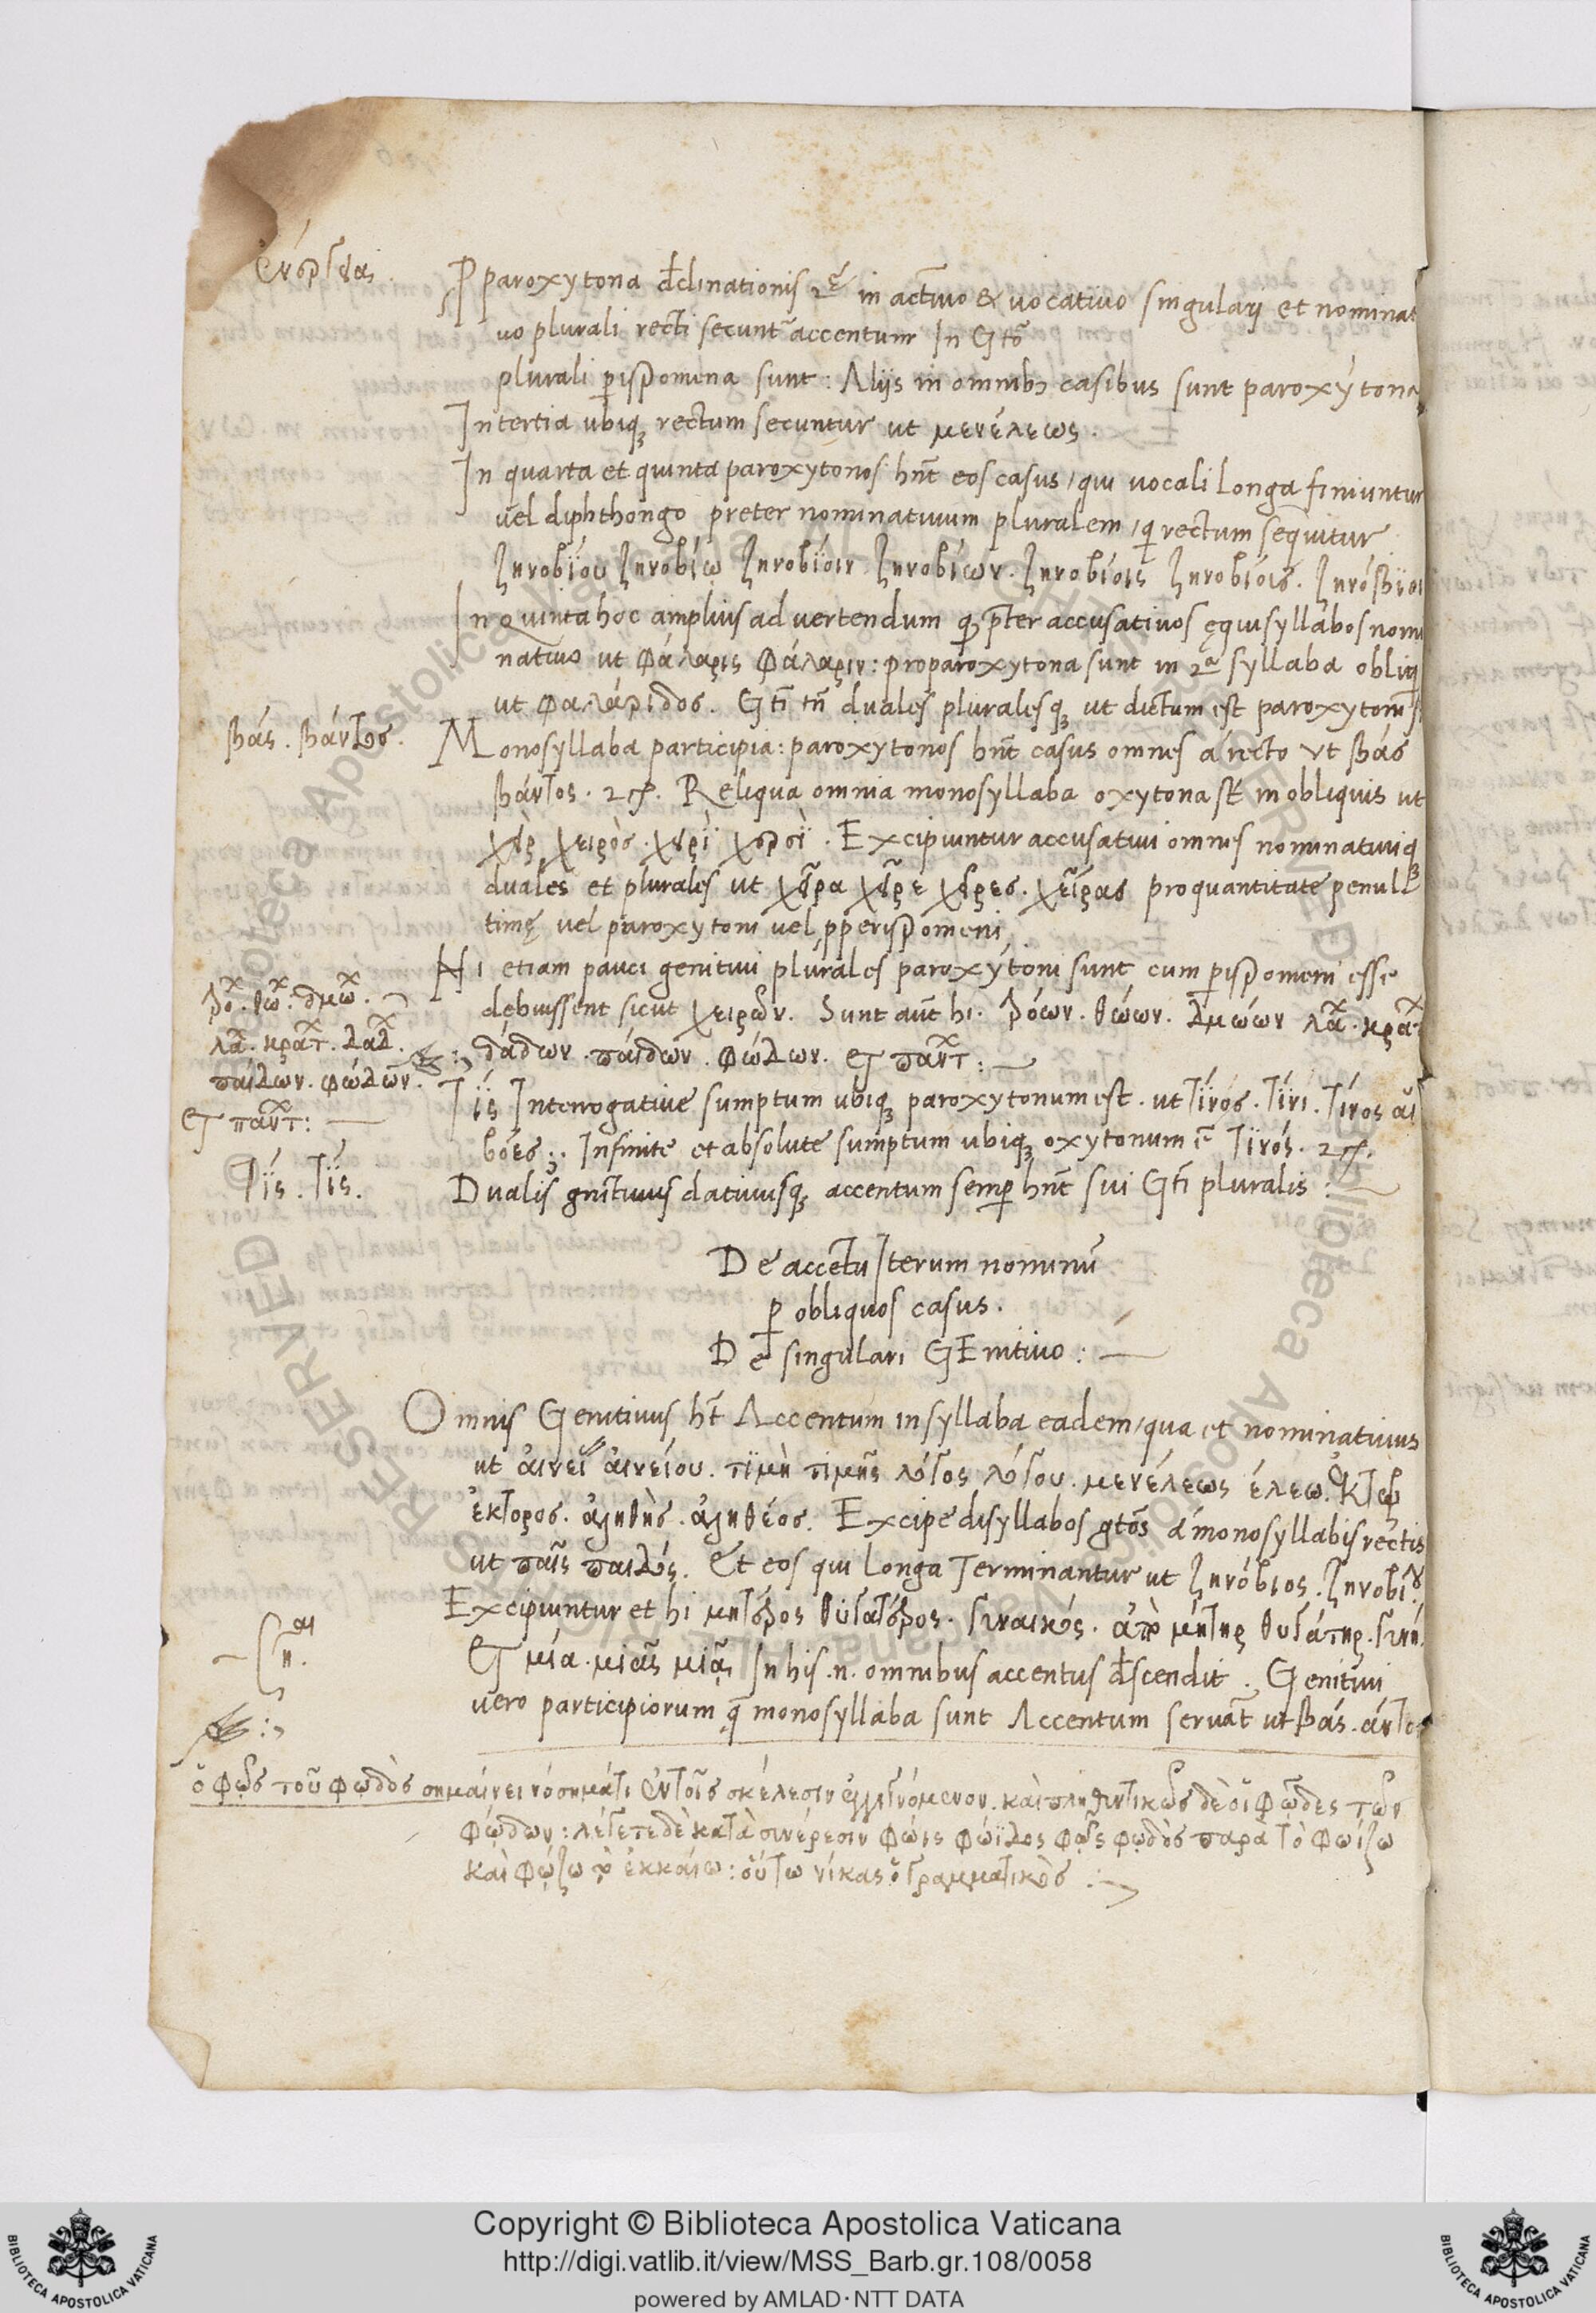 Pparoxytona dclinationis 2ę in actiuo & uocatiuo singulari et nominat
uo plurali recti secunt̃ accentum In Gtō
plurali pispomena sunt: Aliis in omnibꝫ casibus sunt paroxýtona
In tertia ubiqꝫ rectum secuntur ut μενέλεως.
In quarta et quinta paroxytonos hñt eos casus, qui uocali Longa finiuntur
uel diphthongo preter nominatiuum pluralem, q rectum sequitur
ζηνοβίου ζηνοβίῳ ζηνοβίοιν ζηνοβίων. ζηνοβίοις ζηνοβίους.
In quinta hoc amplius aduertendum pter accusatiuos ęquisyllabos nomi
natiuo ut φάλαρις φάλαριν: proparoxytona sunt in 2ª syllaba obliq
ut φαλάριδος. Gtĩ tñ duales pluralesqꝫ ut dictum est paroxytoni
βάς. βάντος.
Monosyllaba participia: paroxytonos hñt casus omnes a recto ut βάς
βάντος. Reliqua omnia monosyllaba oxytona st in obliquis ut
χεὶρ χειρὸς. χειρὶ χερσὶ. Excipiuntur accusatiui omnes nominatiuiq
duales et plurales ut χεῖρα χεῖρε χεῖρες. χεῖρας pro quantitate penul
timę uel paroxytoni uel pperispomeni
Hi etiam pauci genitiui plurales paroxýtoni sunt cum pispomeni esse
debuissent sicut χειρῶν. Sunt aut̃ hi. ῥόων. θώων. δμώων
δάδων. παίδων. φώδων. et παντ:
παίδων. φώδων.
et παντ:
Τίς Interrogatiue sumptum ubiqꝫ paroxytonum est. ut τίνος. τίνι. τίνος
βόες:. Infinite et absolute sumptum ubiqꝫ oxytonum ẽ τινός.
Τίς. τίς.
Dualis gnitiuus datiuusqꝫ accentum semp hñt sui Gtĩ pluralis:
De accẽtu Iterum nominũ
p obliquos casus.
De singulari GEnitiuo:
Omnis Genitiuus ht̃ Accentum in syllaba eadem, qua et nominatiuus
ut αἰνείου. τιμὴ τιμῆς λόγος λόγου. μενέλεως έλεω.
ἕκτορος. ἀληθὴς. ἀληθέος. Excipe disyllabos gtōs a monosyllabis rectis
ut παῖς παιδός. Et eos qui Longa Terminantur ut ζηνόβιος. ζηνοβίου
Excipiuntur et hi μητέρος θυγατέρος. γυναικός. ἀπὸ μήτηρ θυγάτηρ. γυνή.
Et μία. μιᾶς μιᾷ. In his .n. omnibus accentus dscendit. Genitiui
uero participiorum q monosyllaba sunt Accentum seruãt ut βάς. άντο
ὁ φῲς τοῦ φῳδὸς σημαίνει νόσημά τι ἐν τοῖς σκέλεσιν ἐγγινόμενον. καὶ πληθυντικῶς δὲ οἱ φῷδες τῶν
φῴδων: λέγεται δὲ κατὰ συνέρεσιν φώις φώϊδος φῲς φῳδὸς παρὰ τὸ φωίζω
καὶ φῴζω τὸ ἐκκαίω: οὕτω νίκας ὁ γραμματικὸς :
Copyright © Biblioteca Apostolica Vaticana
http://digi.vatlib.it/view/MSS_Barb.gr.108/0058
powered by AMLAD·NTT DATA
BIBLIOTECA APOSTOLICA VATICANA
BIBLIOTECA APOSTOLICA VATICANA